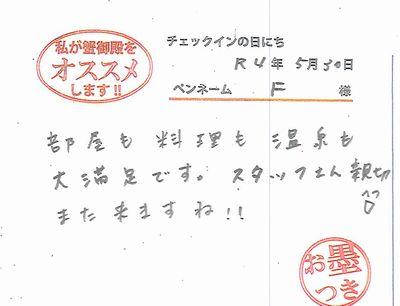 私が蟹御殿を
オススメ
します!!
チェックインの日にち
R4年5月30日
ペンネーム F 様
部屋も料理も温泉も
大満足です。スタッフさん親切
また来ますね!!
お墨
つき